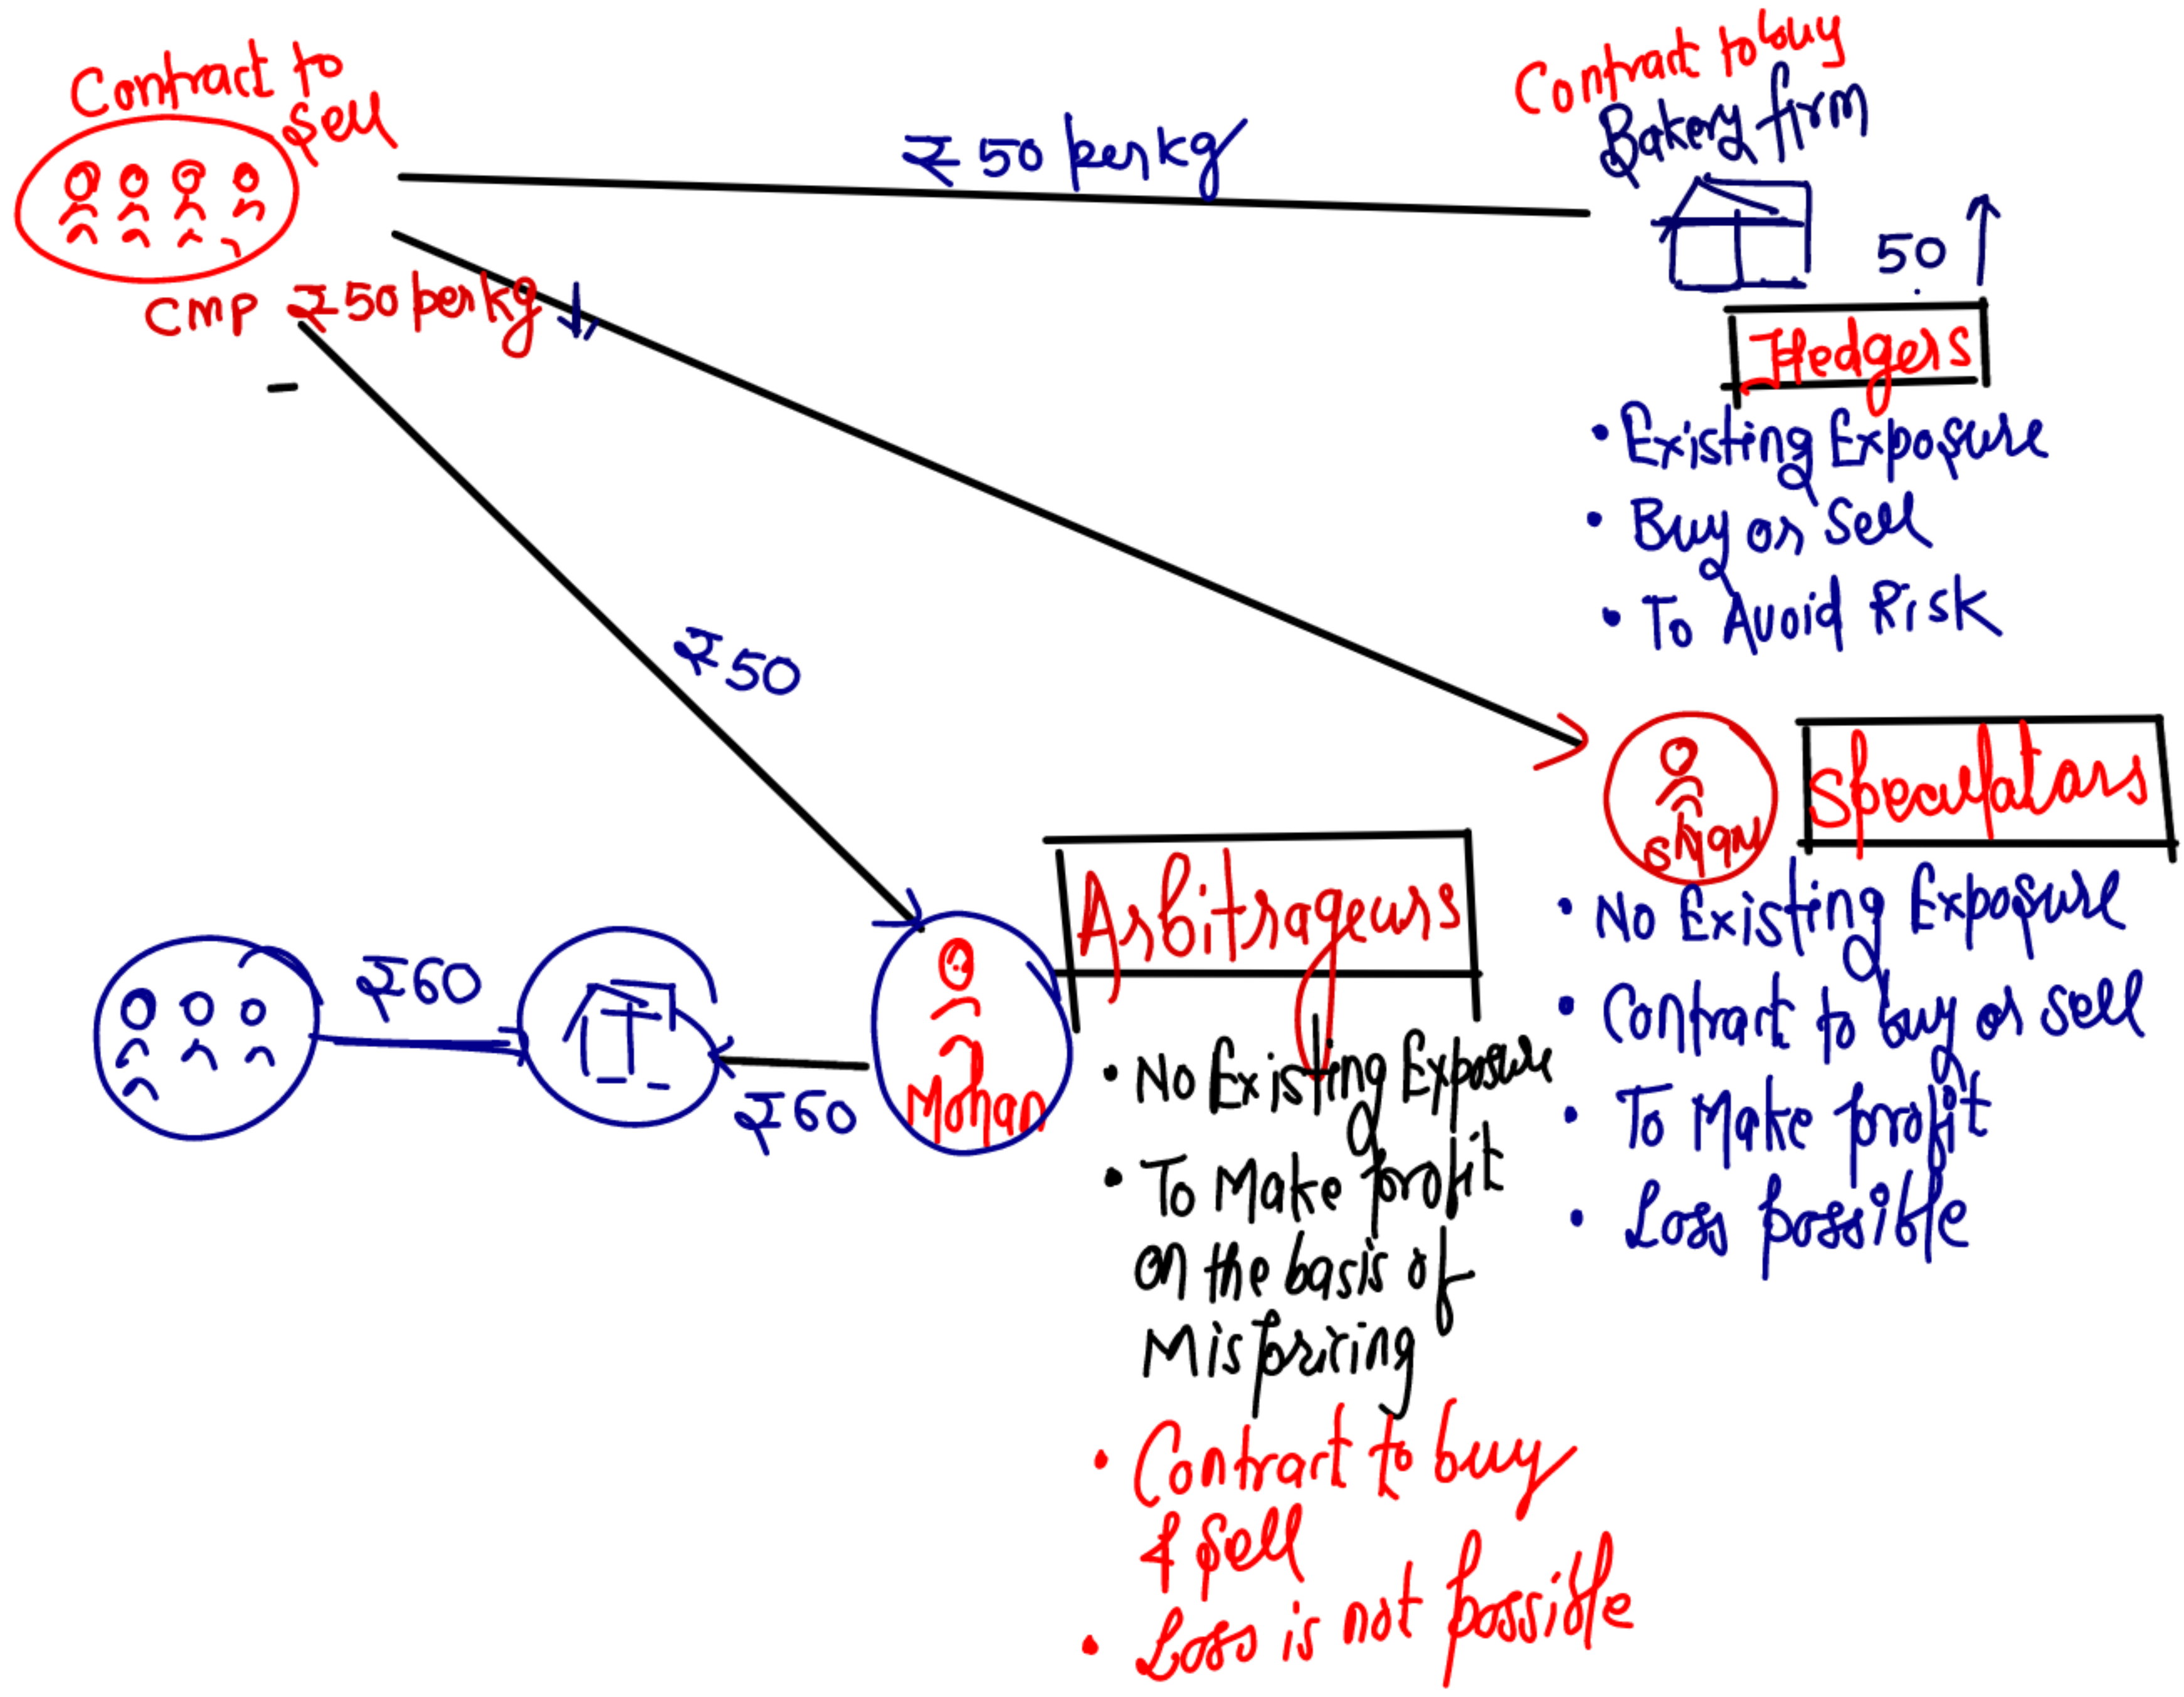 Contract to
sell
CMP ₹50 per kg
₹ 50 per kg
Contract to buy
Bakery firm
50
Hedgers
• Existing Exposure
• Buy or Sell
• To Avoid Risk
₹50
Speculators
• No Existing Exposure
• Contract to buy or sell
• To Make profit
• Loss possible
Arbitrageurs
Mohan
₹60
₹60
• No Existing Exposure
• To Make profit
on the basis of
Mispricing
• Contract to buy
& sell
• Loss is not possible